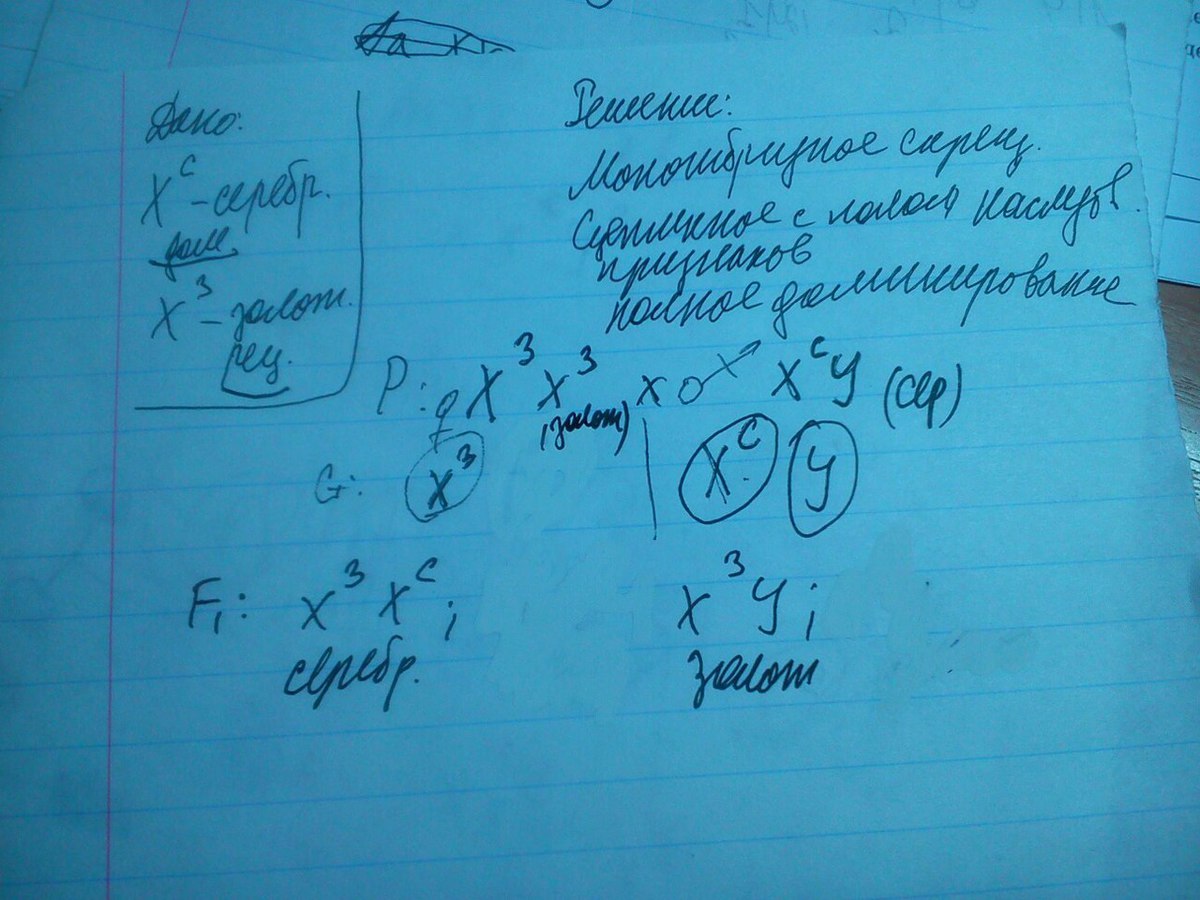 Дано:
X^С – серебр.
дом
X^З – золот.
рец.
Решение:
Моногибридное скрещ.
Сцепленное с полом наследов.
признаков
полное доминирование
P: ♀ X^З X^З x ♂ X^С У (сер)
(золот)
G: X^З | X^С У
F₁: X^З X^С ; X^З У ;
серебр. золот